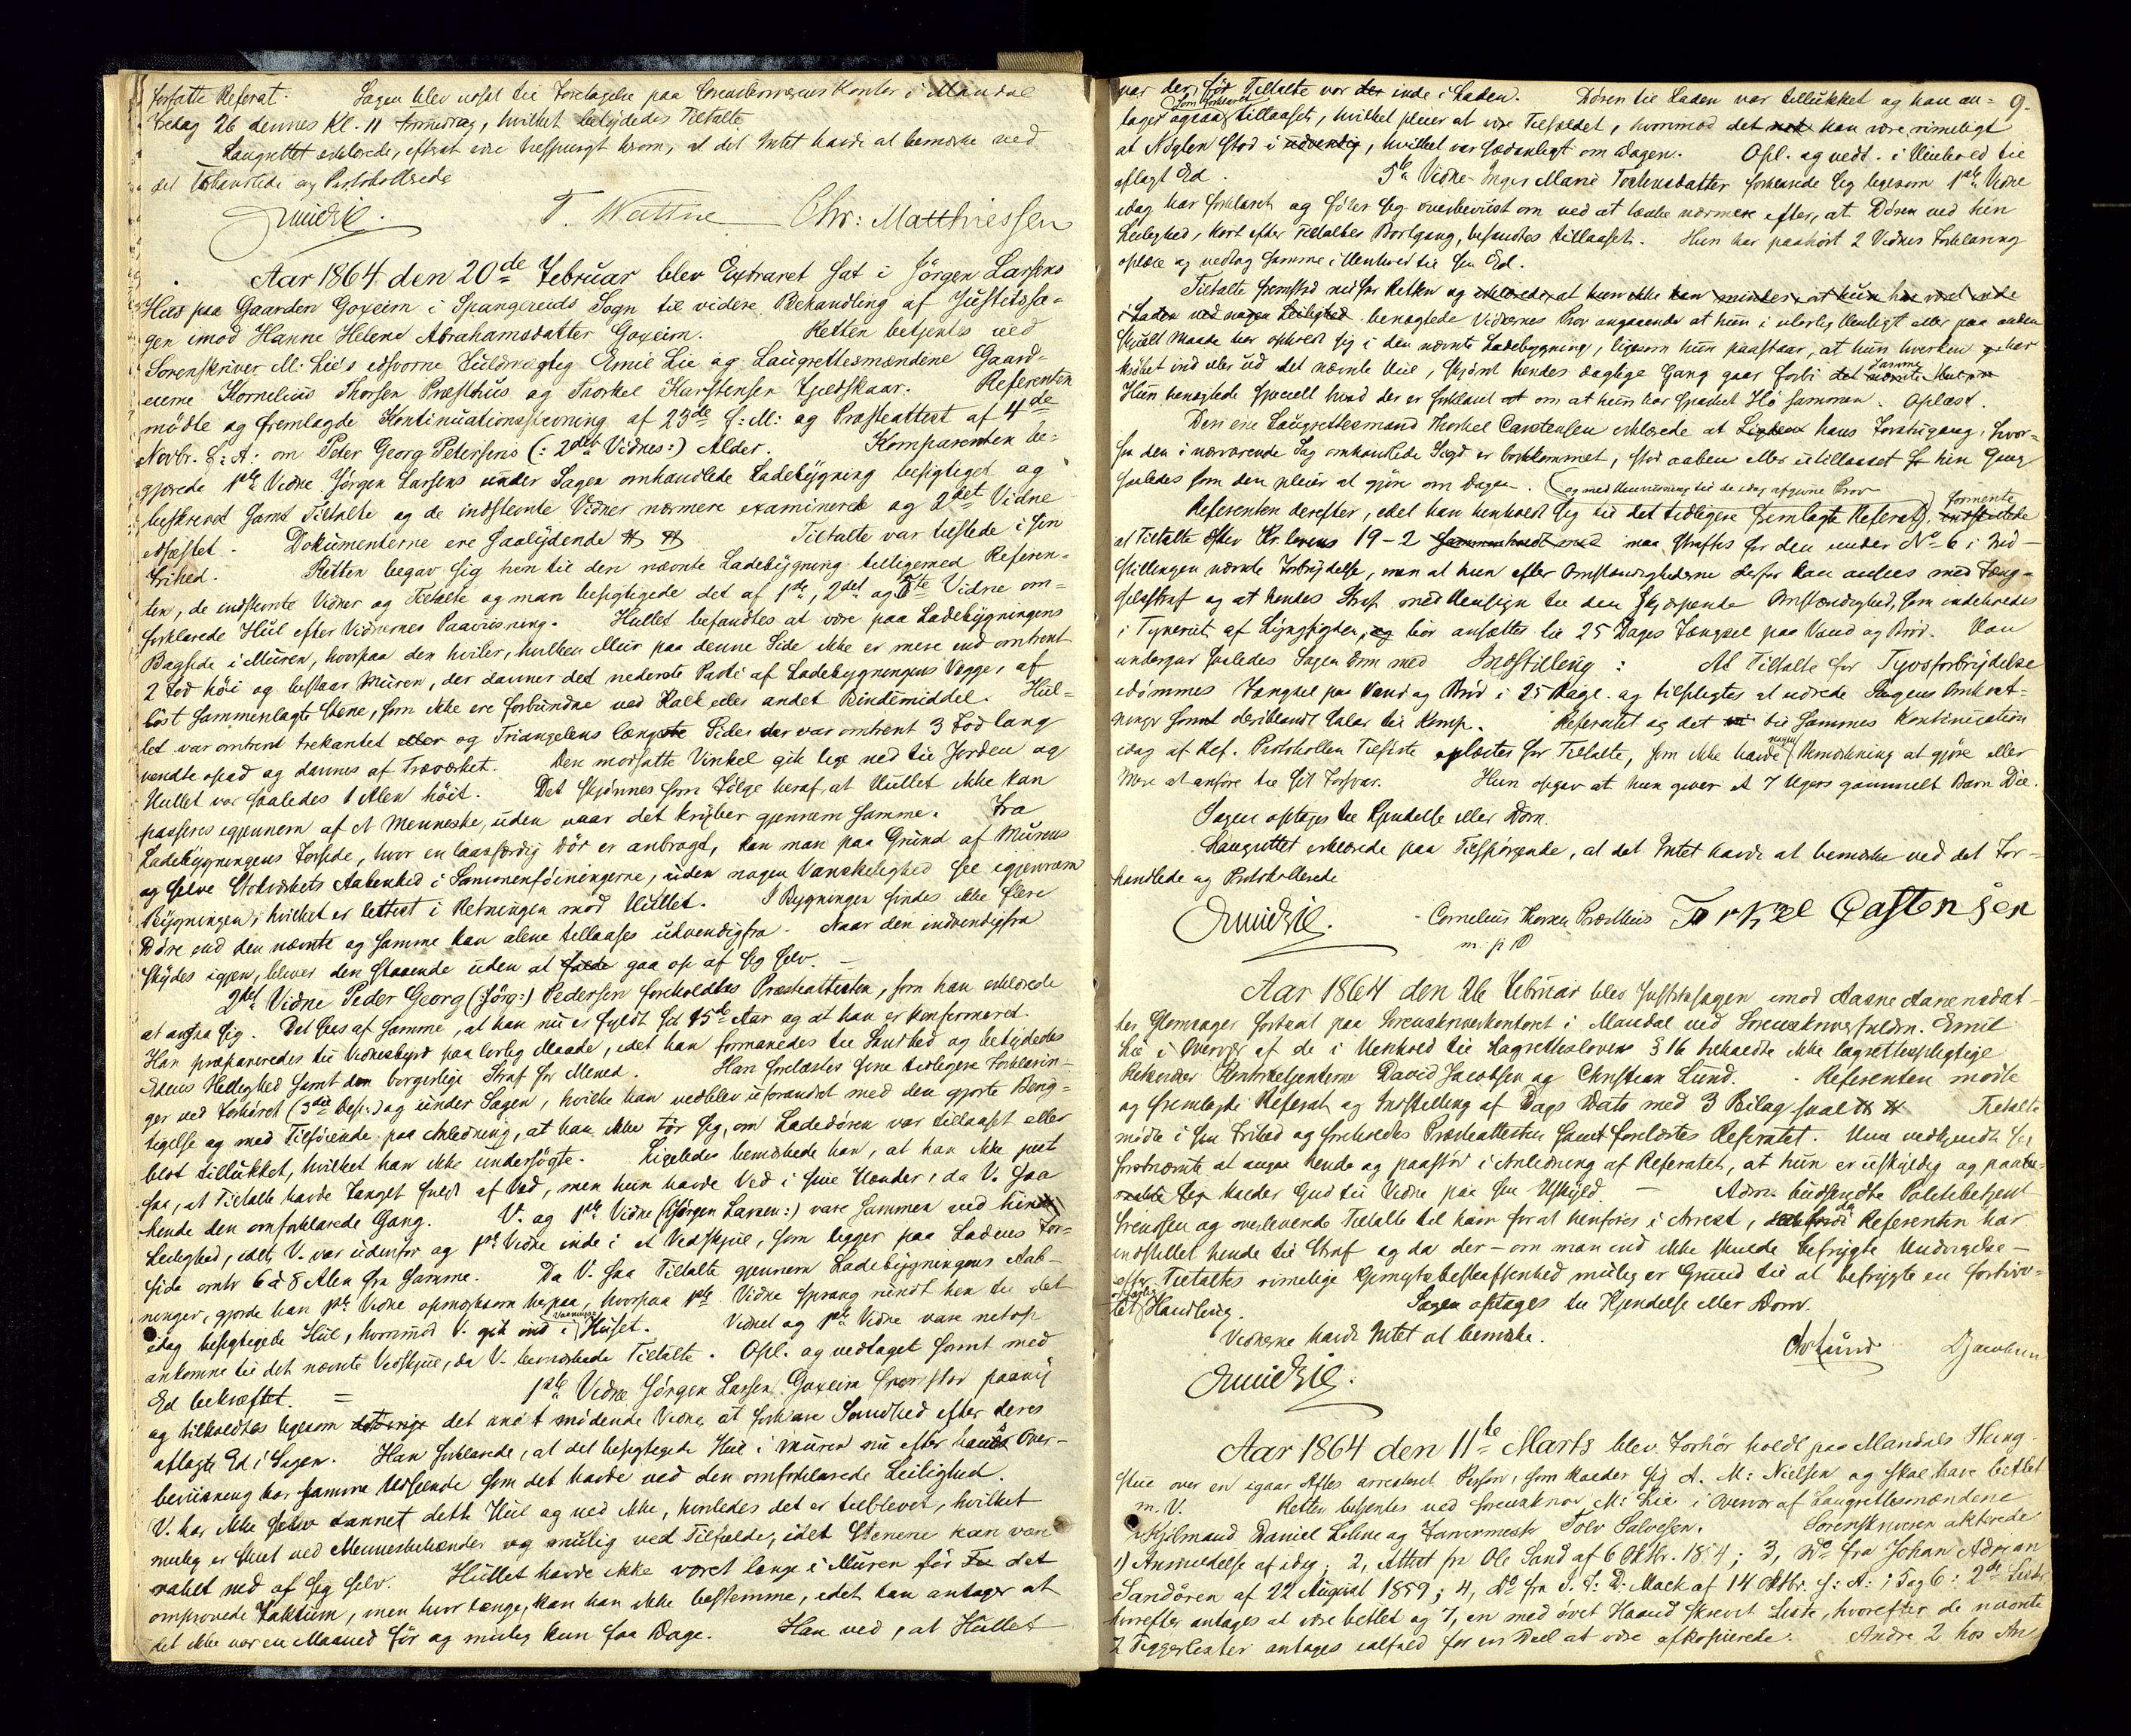 forsatte Referat. Sagen blev udsat til Foretagelse paa Sorenskriverens Kontor i Mandal
Fredag 26 dennes Kl. 11 Formiddag, hvilket betydedes Tiltalte
Laugrettet erklærede, efterat være tilspurgt herom, at det Intet havde at bemærke ved
det Forhandlede og Protokollerede
Emil Lie. T. Wattne Chr: Matthiessen
Aar 1864 den 20de Februar blev Extraret sat i Jørgen Larsens
Huus paa Gaarden Goxeim i Spangereids Sogn til videre Behandling af Justitssa-
gen imod Hanne Helene Abrahamsdatter Goxeim. Retten betjentes ved
Sorenskriver M. Lie's edsvorne Fuldmægtig Emil Lie og Laugrettesmændene Gaard-
eierne Kornelius Thorsen Præsthus og Thorkel Karstensen Gjeldskaar. Referenten
mødte og fremlagde Kontinuationsstevning af 23de f: M: og Præsteattest af 4de
Novbr. f: A: om Peter Georg Petersens (: 2det Vidnes:) Alder. Komparenten be-
gjærede 1ste Vidne Jørgen Larsens under Sagen omhandlede Ladebygning besigtiget og
beskrevet samt Tiltalte og de indstevnte Vidner nærmere examinerede og 2det Vidne
edfæstet. Dokumenterne ere saalydende Tiltalte var tilstede i sin
Frihed. Retten begav sig hen til den nævnte Ladebygning tilligemed Referen-
ten, de indstevnte Vidner og Tiltalte og man besigtigede det af 1ste, 2det og 5te Vidne om-
forklarede Hul efter Vidnernes Paaviisning. Hullet befandtes at være paa Ladebygningens
Bagside i Muren, hvorpaa den hviler, hvilken Muur paa denne Side ikke er mere end omtrent
2 Fod høi og bestaar Muren, der danner det nederste Parti af Ladebygningens Vægge, af
løst sammenlagte Stene, som ikke ere forbundne ved Kalk eller andet Bindemiddel. Hul-
let var omtrent trekantet eller og Triangelens længste Side der var omtrent 3 Fod lang
vendte opad og dannes af Træværket. Den modsatte Vinkel gik lige ned til Jorden og
Hullet var saaledes 1 Alen høit. Det skjønnes som Følge heraf at Hullet ikke kan
passeres igjennem af et Menneske, uden naar det kryber gjennem samme. Fra
Ladebygningens Forside, hvor en laasfærdig Dør er anbragt, kan man paa Grund af Murens
og selve Stokværkets Aabenhed i Sammenføiningerne, uden nogen Vanskelighed see igjennem
Bygningen, hvilket er lettest i Retningen mod Hullet. I Bygningen findes ikke flere
Døre end den nævnte og samme kan alene tillaases udvendigfra. Naar den indvendigfra
skydes igjen, bliver den staaende uden at falde gaa op af sig selv. —
2det Vidne Peder Georg (: Jørg:) Pedersen foreholdtes Præsteattesten, som han erklærede
at angaa sig. Det sees af samme, at han nu er fyldt sit 15de Aar og at han er konfirmeret.
Han præpareredes til Vidnesbyrd paa lovlig Maade, idet han formanedes til Sandhed og betydedes
Edens Hellighed samt den borgerlige Straf for Meened. Han forelæstes sine tidligere Forklarin-
ger ved Forhøret (3die Dep:) og under Sagen, hvilke han vedblev uforandret med den gjorte Berig-
tigelse og med Tilføiende paa Anledning, at han ikke tør sige, om Ladedøren var tillaaset eller
blot tillukket, hvilket han ikke undersøgte. Ligeledes bemærkede han, at han ikke just
saa, at Tiltalte havde Fanget fuldt af Ved, men hun havde Ved i sine Hænder, da V. saa
hende den omforklarede Gang. V. og 1ste Vidne (Jørgen Larsen:) vare sammen ved hin
Leilighed, idet V. var udenfor og 1ste Vidne inde i et Vedskjul, som ligger paa Ladens For-
side omtr 6 à 8 Alen fra samme. Da V. saa Tiltalte gjennem Ladebygningens Aab-
ninger, gjorde han 1ste Vidne opmærksom herpaa, hvorpaa 1ste Vidne sprang rundt hen til det
idag besigtigede Hul, hvorimod V. gik ind i Vaanings-Huset. Vidnet og 1ste Vidne vare netop
ankomne til det nævnte Vedskjul, da V. bemærkede Tiltalte. Opl. og vedtaget samt med
Ed bekræftet. = 1ste Vidne Jørgen Larsen Goxeim fremstod paany
og tilholdtes ligesom det øvrige det næst mødende Vidne at forklare Sandhed efter deres
aflagte Ed i Sagen. Han forklarede, at det besigtigede Hul i Muren nu efter hans Over-
beviisning har samme Udseende som det havde ved den omforklarede Leilighed.
V. har ikke selv dannet dette Hul og ved ikke, hvorledes det er tilblevet, hvilket
mulig er skeet ved Menneskehænder og mulig ved Tilfælde, idet Stenene kan være
raslet ned af sig selv. Hullet havde ikke været længe i Muren før det
omprovede Faktum, men hvor længe, kan han ikke bestemme, idet han antager at
det ikke var en Maaned før og mulig kun faa Dage. Han ved, at Hullet
9.
var der, før Tiltalte var der inde i Laden. Døren til Laden var tillukket og han an-
tager ogsaa som forklaret tillaaset, hvilket pleier at være Tilfældet, hvorimod det kan være rimeligt
at Nøglen stod i udvendig, hvilket var sædvanligt om Dagen. Opl. og vedt. i Henhold til
aflagt Ed. 5te Vidne Inger Marie Torkensdatter forklarede sig ligesom 1ste Vidne
idag har forklaret og føler sig overbeviist om ved at tænke nærmere efter, at Døren ved hin
Leilighed, kort efter Tiltaltes Bortgang, befandtes tillaaset. Hun har paahørt 2 Vidners Forklaring
oplæse og vedtog samme i Henhold til sin Ed.
Tiltalte fremstod nu for Retten og erklærede, at hun ikke kan mindes, at hun har været inde
i Laden ved nogen Leilighed benægtede Vidnernes Prov angaaende at hun i ulovlig Hensigt eller paa anden
skjult Maade har opholdt sig i den nævnte Ladebygning, ligesom hun paastaar, at hun hverken har
krøbet ind eller ud det nævnte Hul, skjønt hendes daglige Gang gaar forbi det nævnte Hul samme
Hun benægtede specielt hvad der er forklaret om at hun har sparket Hø sammen. Oplæst.
Den ene Laugrettesmand Thorkel Carstensen erklærede at hans Forstugang, hvor-
fra den i nærværende Sag omhandlede Sigd er bortkommet, stod aaben eller utillaaset hin Gang
saaledes som den pleier at gjøre om Dagen. (og med Henviisning til de idag afgivne Prov
Referenten derefter, idet han henholdt sig til det tidligere fremlagte Referat) formente
at Tiltalte efter Kr. lovens 19-2 sammenholdt med maa straffes for den under No 6 i Ind-
stillingen nævnte Forbrydelse, men at hun efter Omstændighederne derfor kan ansees med Fæng-
selsstraf og at hendes Straf med Hensyn til den skjærpende Omstændighed, som indeholdes
i Tyveriet af Lyngsigden, og bør ansættes til 25 Dages Fængsel paa Vand og Brød. Han
undergav saaledes Sagen Dom med Indstilling: At Tiltalte for Tyvsforbrydelse
idømmes Fængsel paa Vand og Brød i 25 Dage og tilpligtes at udrede Sagens Omkost-
ninger samt deriblandt Salær til Komp. Referatet og det til sammes Kontinuation
idag af Ref. Protokollen Tilførte oplæstes for Tiltalte, som ikke havde nogen Bemærkning at gjøre eller
Mere at anføre til sit Forsvar. Hun opgav at hun giver et 7 Ugers gammelt Barn Die.
Sagen optages til Kjendelse eller Dom.
Laugrettet erklærede paa Tilspørgende, at det Intet havde at bemærke ved det For-
handlede og Protokollerede
Emil Lie. Cornelius Thorsen Præsthus Torkel Castensen
m. p. P
Aar 1864 den 26 Februar blev Justitssagen imod Aasne Aanensdat-
ter Glomsager fortsat paa Sorenskriverkontoret i Mandal ved Sorenskriverfuldm. Emil
Lie i Overvær af de i Henhold til Lagretteslovens § 16 tilkaldte ikke lagrettespligtige
Rekvirder Kontorbetjenterne David Jacobsen og Christian Lund. Referenten mødte
og fremlagde Referat og Indstilling af Dags Dato med 3 Bilag saal Tiltalte
mødte i sin Frihed og foreholdtes Præsteattesten samt forelæstes Referatet. Hun vedkjendte sig
førstnævnte at angaa hende og paastod i Anledning af Referatet, at hun er uskyldig og paabe-
raabte sig kalder Gud til Vidne paa sin Uskyld. — Adm. budsendte Politibetjent
Svendsen og overleverede Tiltalte til ham for at henføres i Arrest, da Referenten har
indstillet hende til Straf og da der — om man end ikke skulde befrygte Undvigelse —
efter Tiltaltes rimelige Gemytsbeskaffenhed mulig er Grund til at befrygte en fortviv-
let Handling. Sagen optages til Kjendelse eller Dom.
Vidnerne havde Intet at bemærke.
Emil Lie. Chr Lund DJacobsen
Aar 1864 den 11te Marts blev Forhør holdt paa Mandals Thing-
stue over en igaar Aftes arresteret Person, som kalder sig A. M: Nielsen og skal have betlet
m. V. Retten betjentes ved Sorenskriver M: Lie i Overvær af Laugrettesmændene
Skjølmand Daniel Lohne og Farvermester Tolv Salvesen. Sorenskriveren akterede
1) Anmeldelse af idag; 2, Attest fra Ole Sand af 6 Oktbr. 1854; 3, Do fra Johan Adrian
Sandøren af 22 August 1859; 4, Do fra J. F. D. Mack af 14 Oktbr. f: A: ; 5 og 6: 2de Lister,
hvorefter antages at være betlet og 7, en med øvet Haand skrevet Liste, hvorefter de nævnte
2 Tiggerlister antages ialfald for en Deel at være afkopierede. Andre 2 hos An